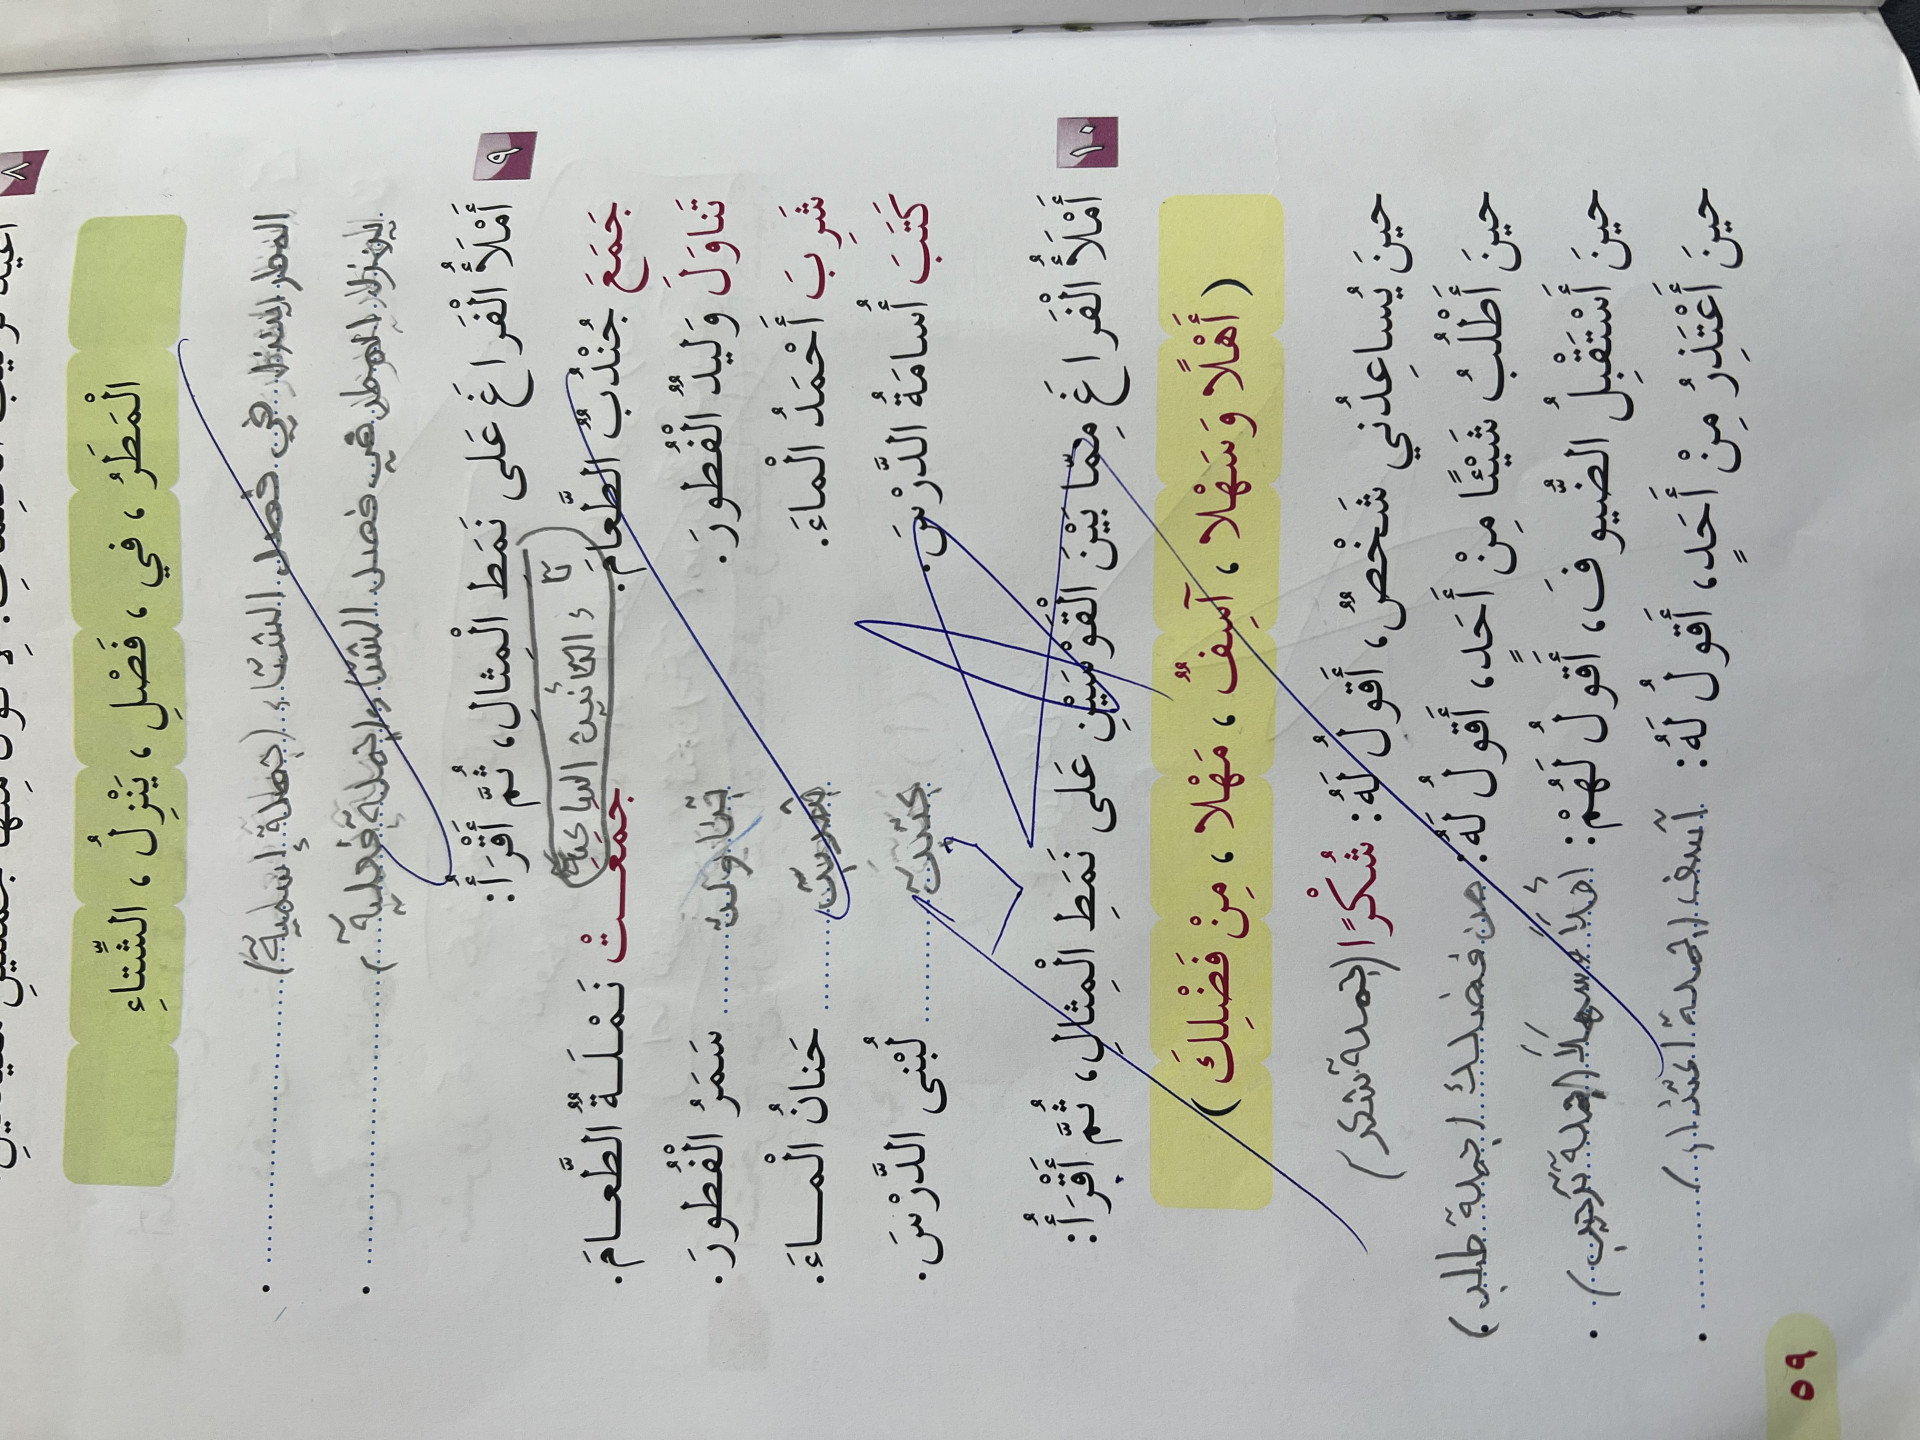 ٨
الْمَطَرُ ، في ، فَصْلِ ، يَنْزِلُ ، الشِّتاءِ
المطر ينزل في فصل الشتاء (جملة إسمية)
ينزل المطر في فصل الشتاء (جملة فعلية)
٩ أَمْلَأُ الْفَراغَ عَلى نَمَطِ الْمثالِ، ثُمَّ أَقْرَأُ:
تْ التأنيث الساكنة
جَمَعَ جُنْدُبٌ الطَّعامَ. جمَعَــتْ نَمْلَــةٌ الطَّعــامَ.
تَناوَلَ وَليدُ الْفُطورَ. تناولت سَمَرُ الْفُطورَ.
شَرِبَ أَحْمَدُ الْماءَ. شربت حَنانُ الْمــاءَ.
كَتَبَ أُسامَةُ الدَّرْسَ. كتبت لُبْنى الدَّرْسَ.
١٠ أَمْلَأُ الْفَراغَ مِمّا بَيْنَ الْقَوْسَيْنِ عَلى نَمَطِ الْمِثالِ، ثُمَّ أَقْرَأُ:
( أَهْلًا وَسَهْلا ، آسِفٌ ، مَهْلا ، مِنْ فَضْلِكَ )
حينَ يُساعِدُني شَخْصٌ، أَقولُ لَهُ: شُكْرًا (جملة شكر)
حينَ أَطْلُبُ شَيْئًا مِنْ أَحَدٍ، أَقولُ لَهُ: من فضلك (جملة طلب)
حينَ أَسْتَقْبِلُ الضُّيوفَ، أَقولُ لَهُمْ: أهلاً وسهلاً (جملة ترحيب)
حينَ أَعْتَذِرُ مِنْ أَحَدٍ، أَقولُ لَهُ: آسف (جملة اعتذار)
٥٩